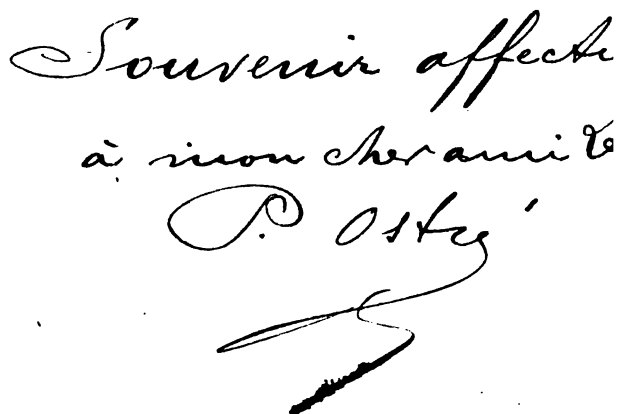 Souvenir affecte
à mon cher ami
P. Ostré